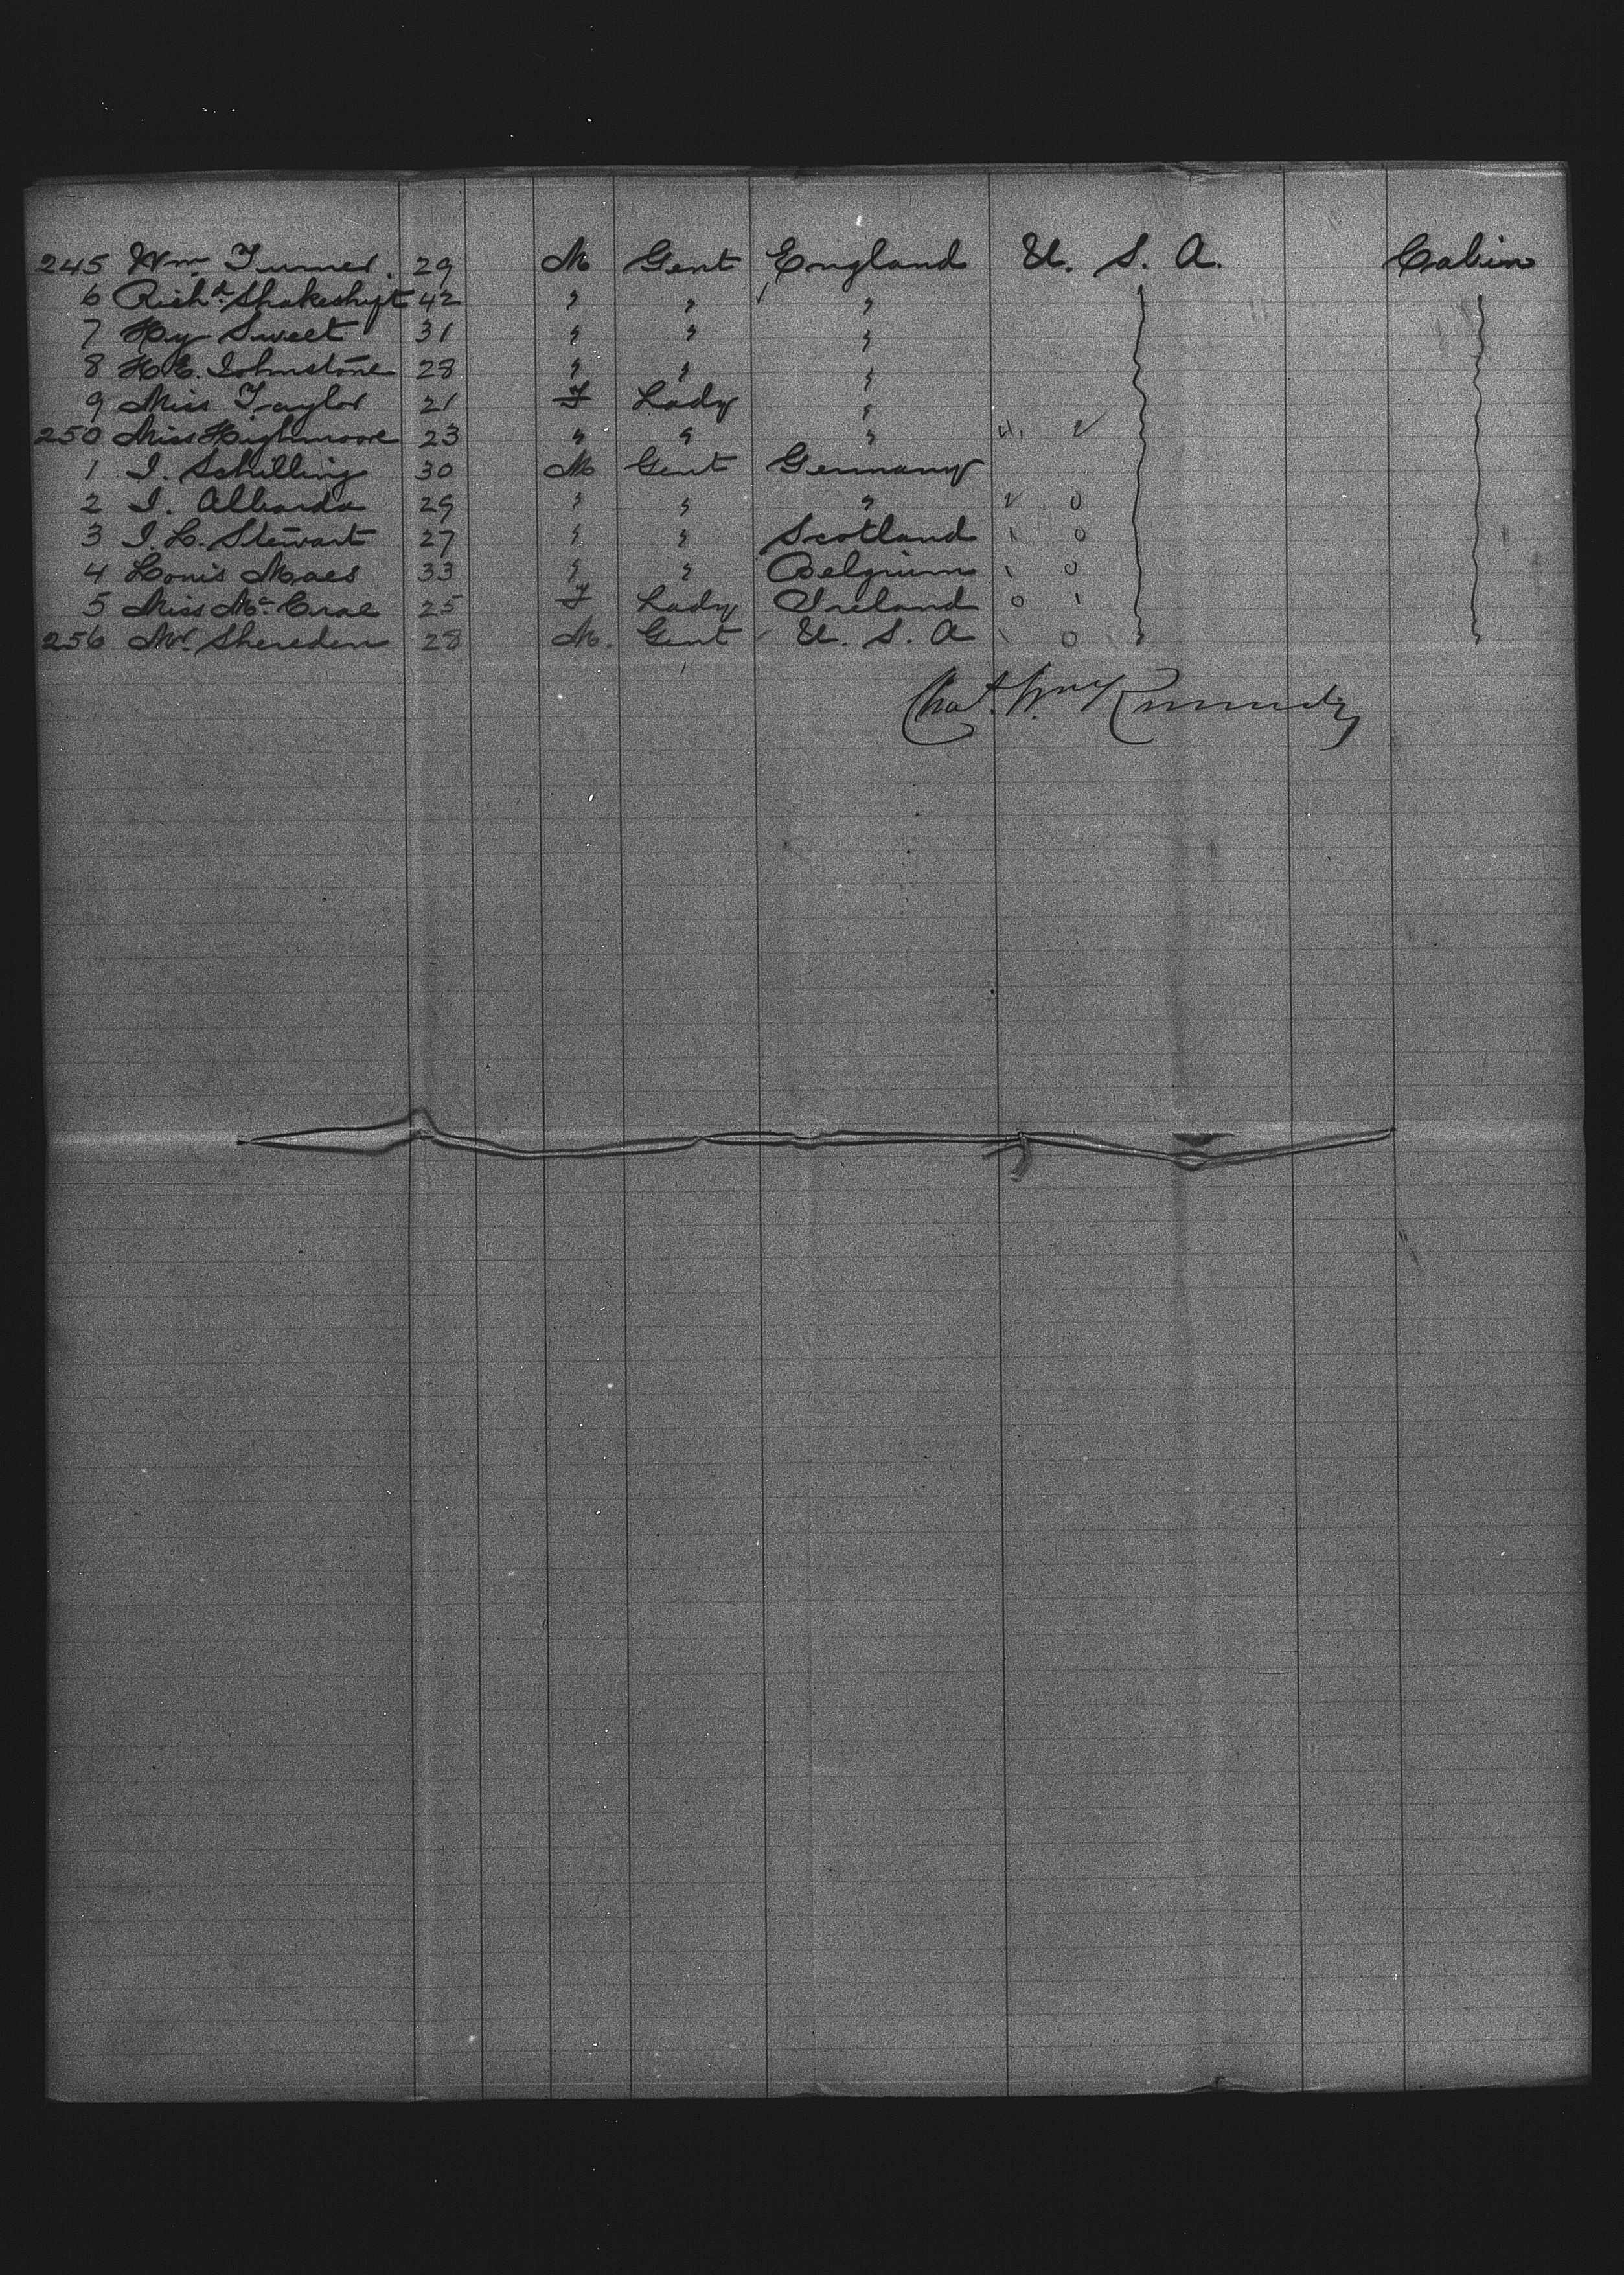 245 Wm Turner. 29 M Gent England U. S. A. Cabin
6 Richd Shakeshyt 42 " " "
7 Hy Sweet 31 " " "
8 H.E. Johnstone 28 " " "
9 Miss Taylor 21 F Lady "
250 Miss Highmoore 23 " " "
1 I. Schilling 30 M Gent Germany
2 I. Albarda 29 " " "
3 I. L. Stewart 27 " " Scotland
4 Louis Maes 33 " " Belgium
5 Miss McCrae 25 F Lady Ireland
256 Mr Shereden 28 M. Gent U. S. A
Chas. Wm Kennedy